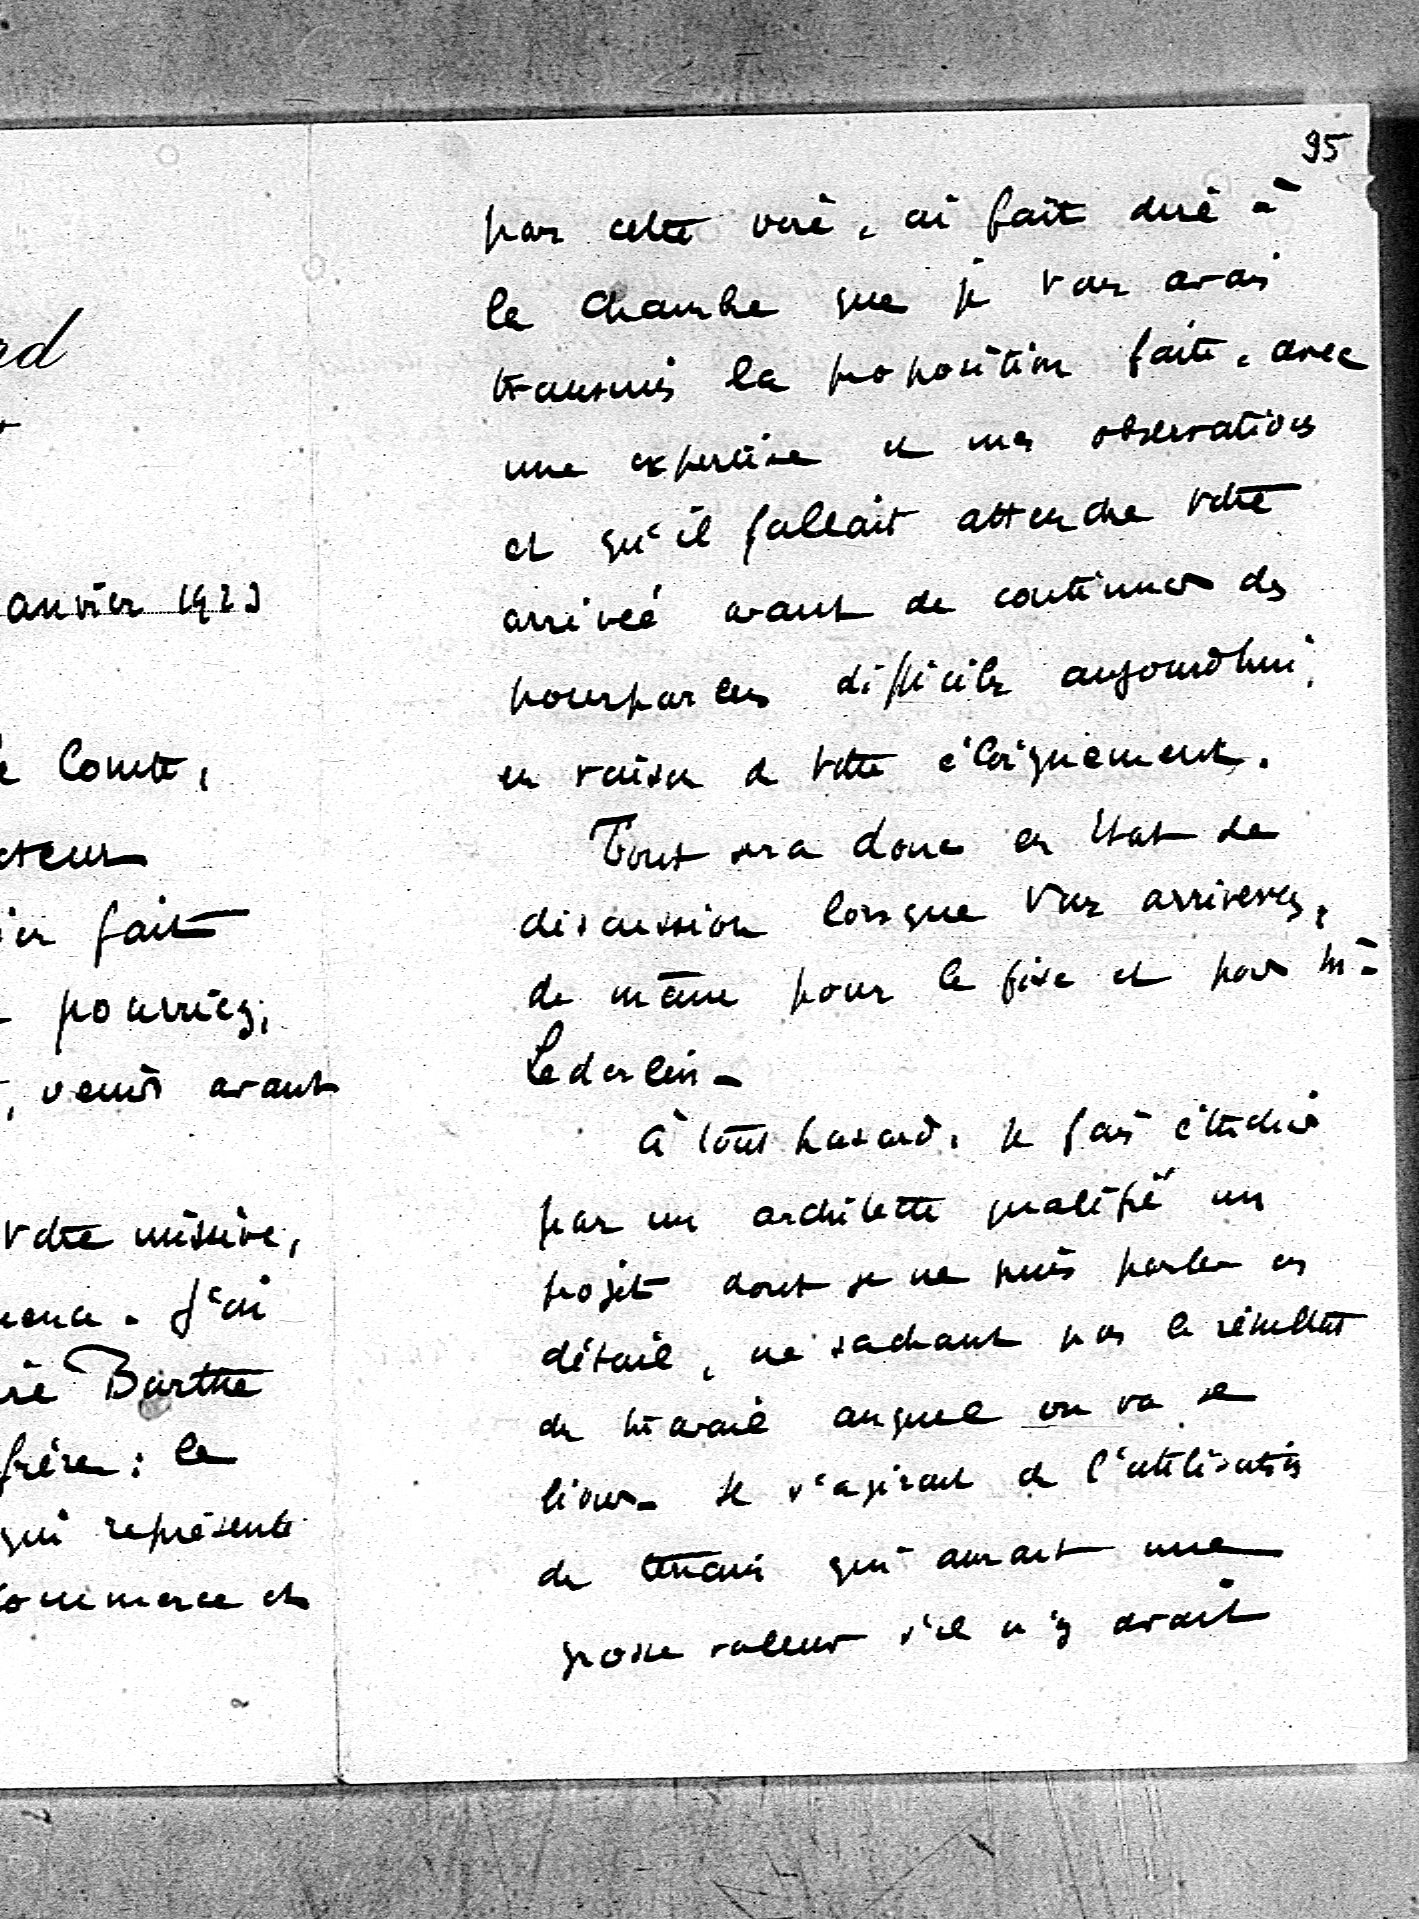 anvier 1923
Comte,
cteur
fait
pourriez,
, venir avant
votre missive,
J'ai
Barthe
frère : le
qui représente
commerce et
95
par cette voie, ai fait dire à
la Chambre que je vous avais
transmis la proposition faite, avec
une expertise et mes observations
et qu'il fallait attendre votre
arrivée avant de continuer des
pourparlers difficiles aujourd'hui,
en raison de votre éloignement.
Tout sera donc en état de
discussion lorsque vous arriverez,
de même pour le fisc et pour Me
Lederlin -
A tout hasard, je fais étudier
par un architecte qualifié un
projet dont je ne puis parler en
détail, ne sachant pas le résultat
du travail auquel on va se
livrer. Il s'agirait de l'utilisation
du terrain qui aurait une
grosse valeur s'il n'y avait